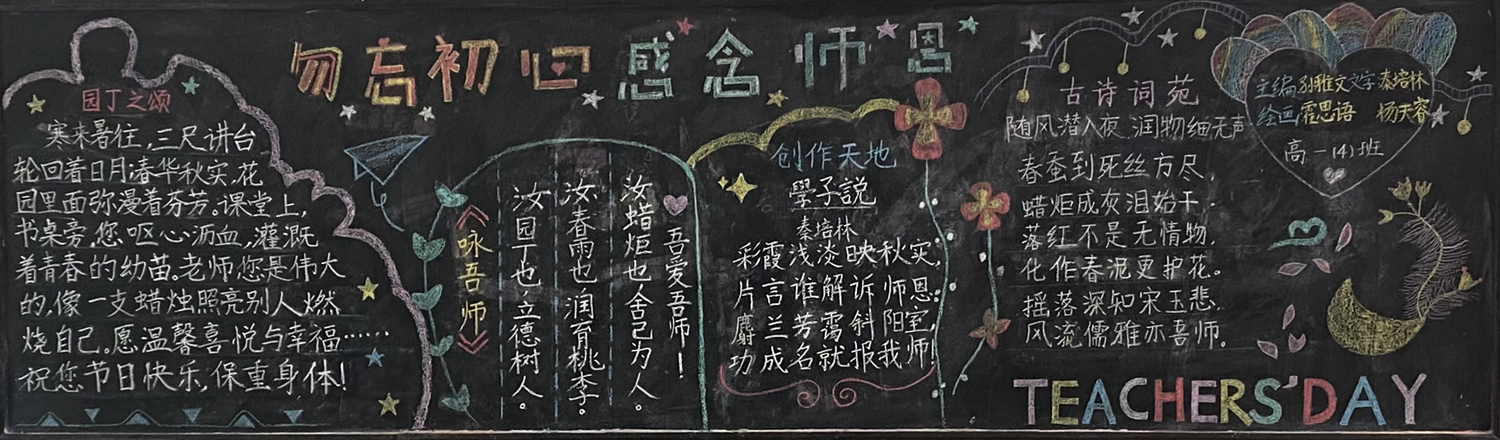 勿忘初心 感念师恩
园丁之颂
寒来暑往,三尺讲台
轮回着日月.春华秋实,花
园里面弥漫着芬芳。课堂上,
书桌旁,您呕心沥血,灌溉
着青春的幼苗。老师,您是伟大
的,像一支蜡烛照亮别人燃
烧自己。愿温馨喜悦与幸福……
祝您节日快乐,保重身体!
《咏吾师》
吾爱吾师!
汝蜡炬也,舍己为人。
汝春雨也 润育桃李。
汝园丁也 立德树人。
创作天地
學子説
秦培林
彩霞浅淡映秋实,
片言谁解诉师恩。
麝兰芳霭斜阳室,
功成名就报我师!
古诗词苑
随风潜入夜 润物细无声
春蚕到死丝方尽,
蜡炬成灰泪始干.
落红不是无情物,
化作春泥更护花。
摇落深知宋玉悲,
风流儒雅亦吾师。
主编 孙雅文 文字 秦培林
绘画 霍思语 杨天容
高一(4)班
TEACHERS' DAY